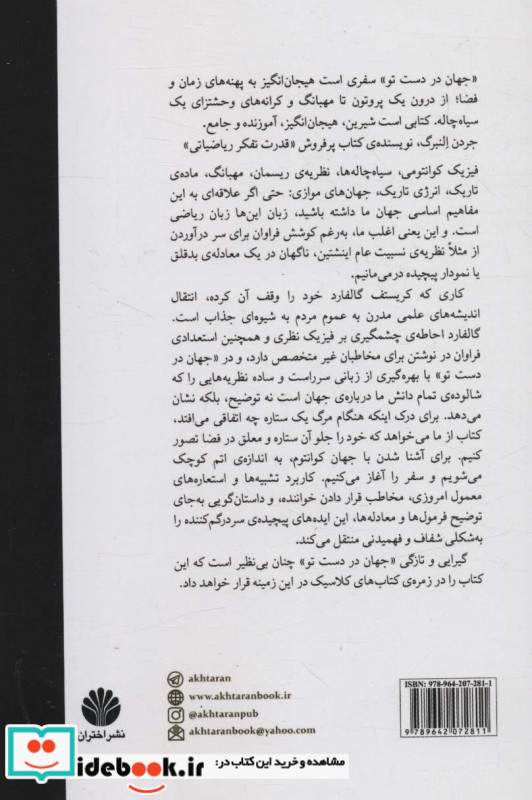 «جهان در دست تو» سفری است هیجان‌انگیز به پهنه‌های زمان و
فضا؛ از درون یک پروتون تا مهبانگ و کرانه‌های وحشتزای یک
سیاه‌چاله. کتابی است شیرین، هیجان‌انگیز، آموزنده و جامع.
جردن اِلنبرگ، نویسنده‌ی کتاب پرفروش «قدرت تفکر ریاضیاتی»
فیزیک کوانتومی، سیاه‌چاله‌ها، نظریه‌ی ریسمان، مهبانگ، ماده‌ی
تاریک، انرژی تاریک، جهان‌های موازی: حتی اگر علاقه‌ای به این
مفاهیم اساسی جهان ما داشته باشید، زبان این‌ها زبان ریاضی
است. و این یعنی اغلب ما، به‌رغم کوشش فراوان برای سر درآوردن
از مثلاً نظریه‌ی نسبیت عام اینشتین، ناگهان در یک معادله‌ی بدقلق
یا نمودار پیچیده درمی‌مانیم.
کاری که کریستف گالفارد خود را وقف آن کرده، انتقال
اندیشه‌های علمی مدرن به عموم مردم به شیوه‌ای جذاب است.
گالفارد احاطه‌ی چشمگیری بر فیزیک نظری و همچنین استعدادی
فراوان در نوشتن برای مخاطبان غیر متخصص دارد، و در «جهان در
دست تو» با بهره‌گیری از زبانی سرراست و ساده نظریه‌هایی را که
شالوده‌ی تمام دانش ما درباره‌ی جهان است نه توضیح، بلکه نشان
می‌دهد. برای درک اینکه هنگام مرگ یک ستاره چه اتفاقی می‌افتد،
کتاب از ما می‌خواهد که خود را جلو آن ستاره و معلق در فضا تصور
کنیم. برای آشنا شدن با جهان کوانتوم، به اندازه‌ی اتم کوچک
می‌شویم و سفر را آغاز می‌کنیم. کاربرد تشبیه‌ها و استعاره‌های
معمول امروزی، مخاطب قرار دادن خواننده، و داستان‌گویی به‌جای
توضیح فرمول‌ها و معادله‌ها، این ایده‌های پیچیده‌ی سردرگم‌کننده را
به‌شکلی شفاف و فهمیدنی منتقل می‌کند.
گیرایی و تازگی «جهان در دست تو» چنان بی‌نظیر است که این
کتاب را در زمره‌ی کتاب‌های کلاسیک در این زمینه قرار خواهد داد.
akhtaran
www.akhtaranbook.ir
@akhtaranpub
akhtaranbook@yahoo.com
ISBN: 978-964-207-281-1
9 789642 072811
نشر اختران
مشاهده و خرید این کتاب در:
idebook.ir